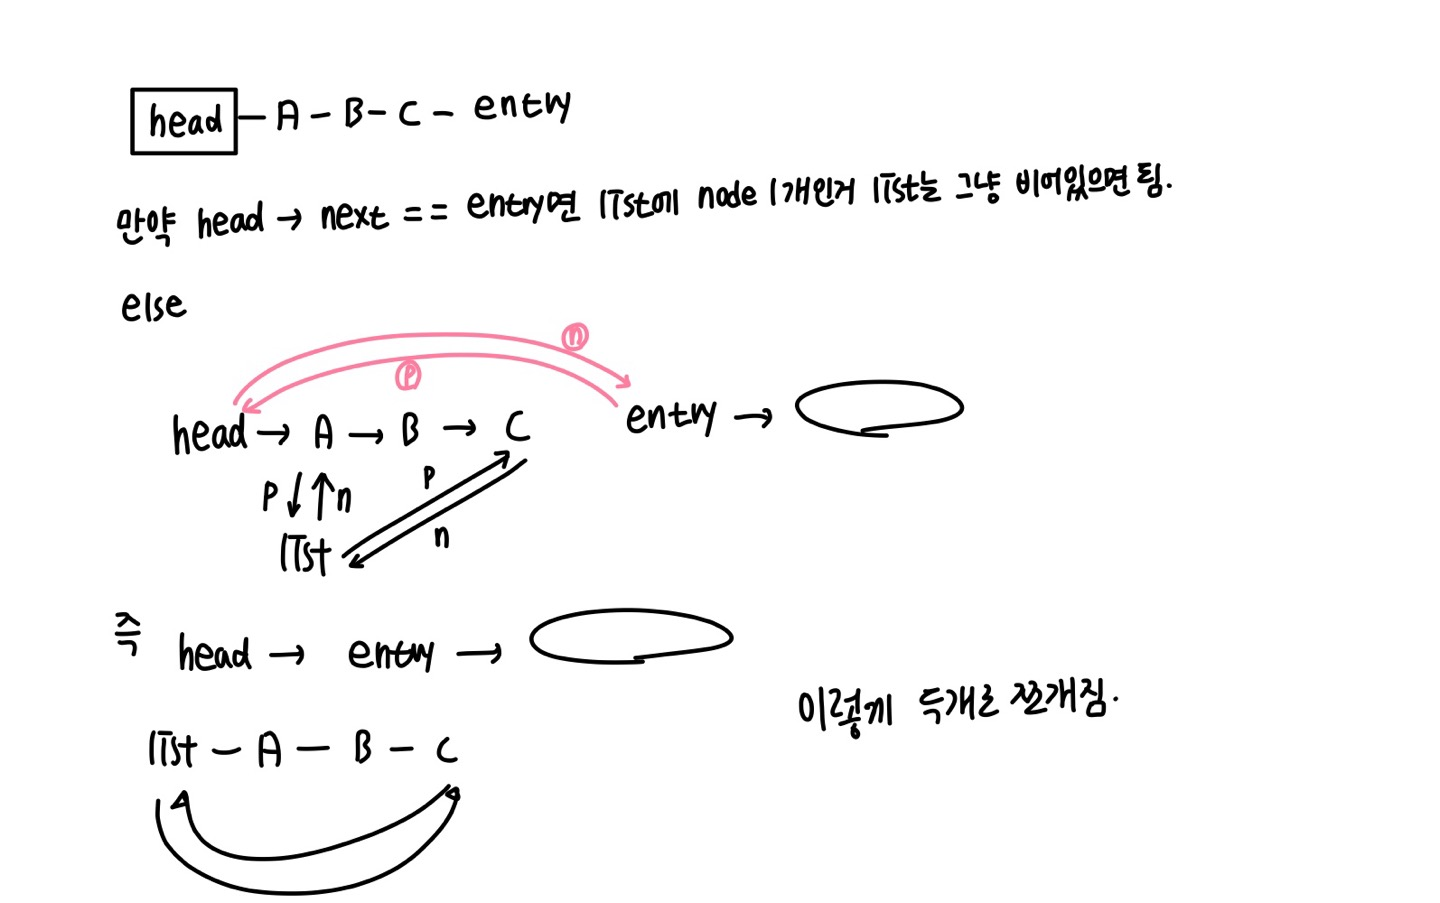 head - A - B - C - entry
만약 head → next == entry면 list에 node 1개인거 list는 그냥 비어있으면 됨.
else
n
p
head → A → B → C entry →
p n p n
list
즉 head → entry →
이렇게 두개로 쪼개짐.
list - A - B - C